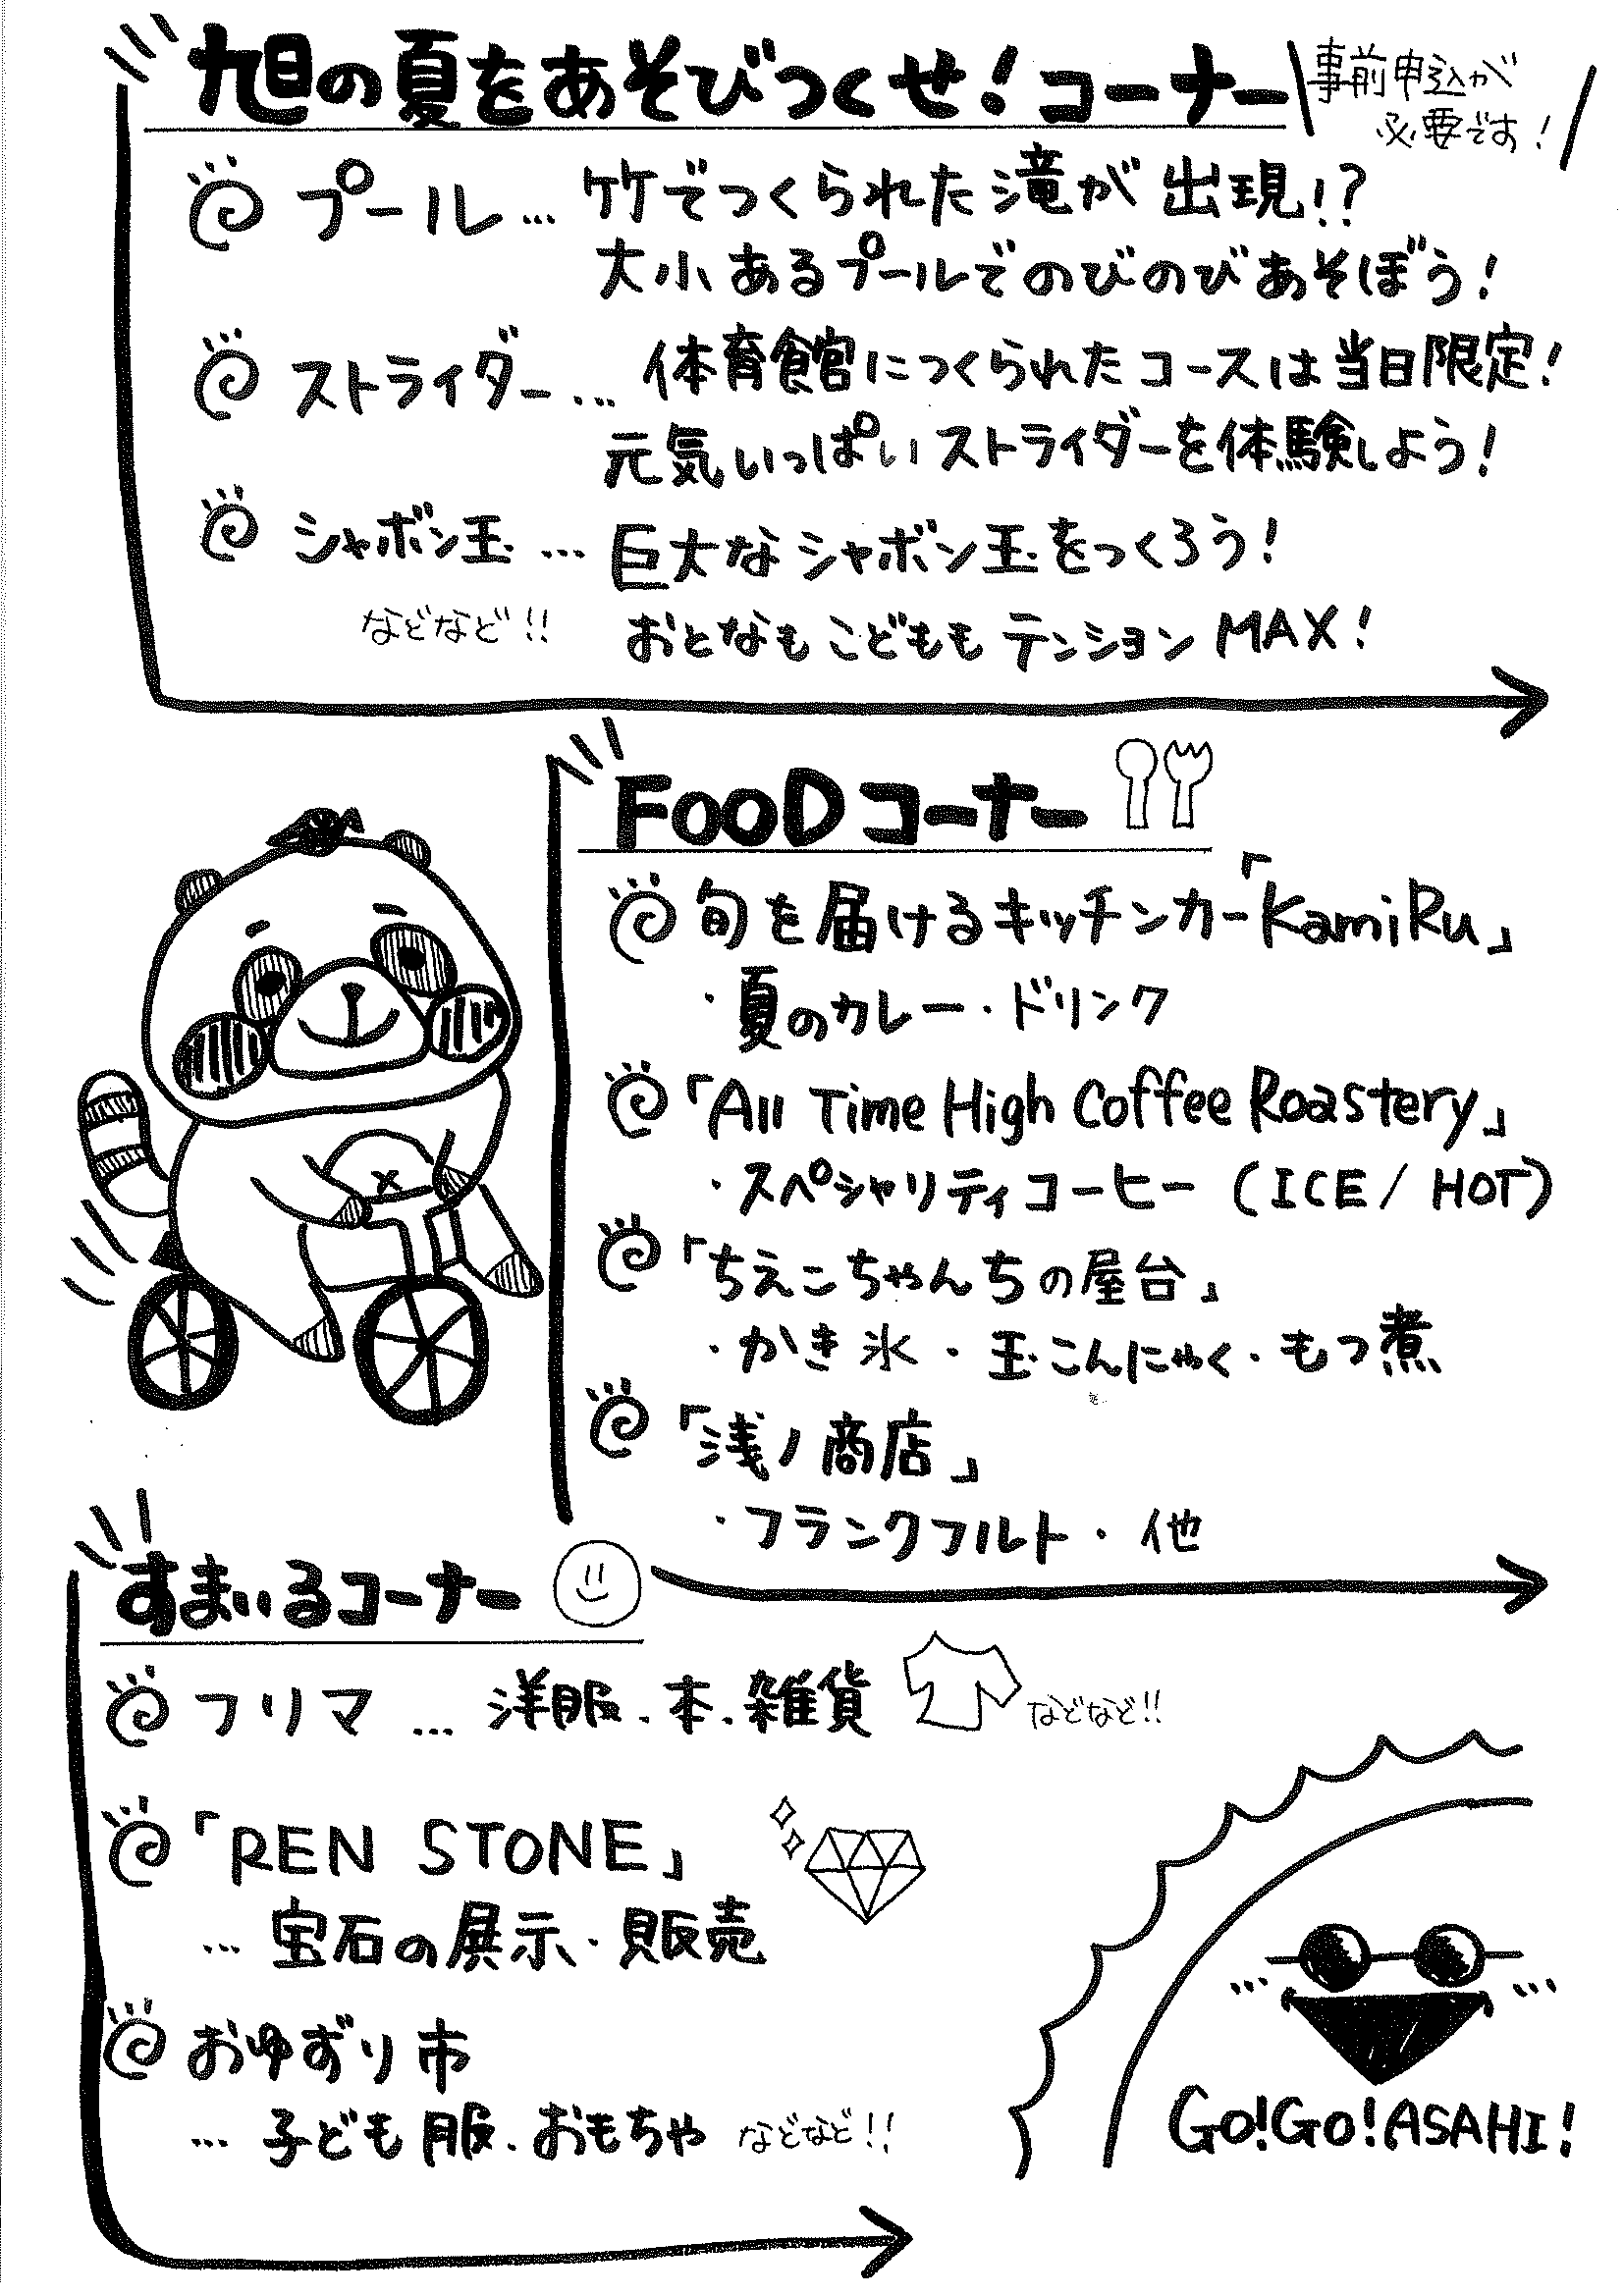 旭の夏をあそびつくせ！コーナー
事前申込が
必要です！
プール… 竹でつくられた滝が出現！？
大小あるプールでのびのびあそぼう！
ストライダー… 体育館につくられたコースは当日限定！
元気いっぱいストライダーを体験しよう！
シャボン玉… 巨大なシャボン玉をつくろう！
などなど！！ おとなもこどももテンションMAX！
FOODコーナー
旬を届けるキッチンカー「KamiRu」
・夏のカレー・ドリンク
「All Time High Coffee Roastery」
・スペシャリティコーヒー（ICE/HOT）
「ちえこちゃんちの屋台」
・かき氷・玉こんにゃく・もつ煮
「浅ノ商店」
・フランクフルト・他
すまいるコーナー
フリマ… 洋服・本・雑貨 などなど！！
「REN STONE」
… 宝石の展示・販売
おゆずり市
… 子ども服・おもちゃ などなど！！
GO!GO!ASAHI!